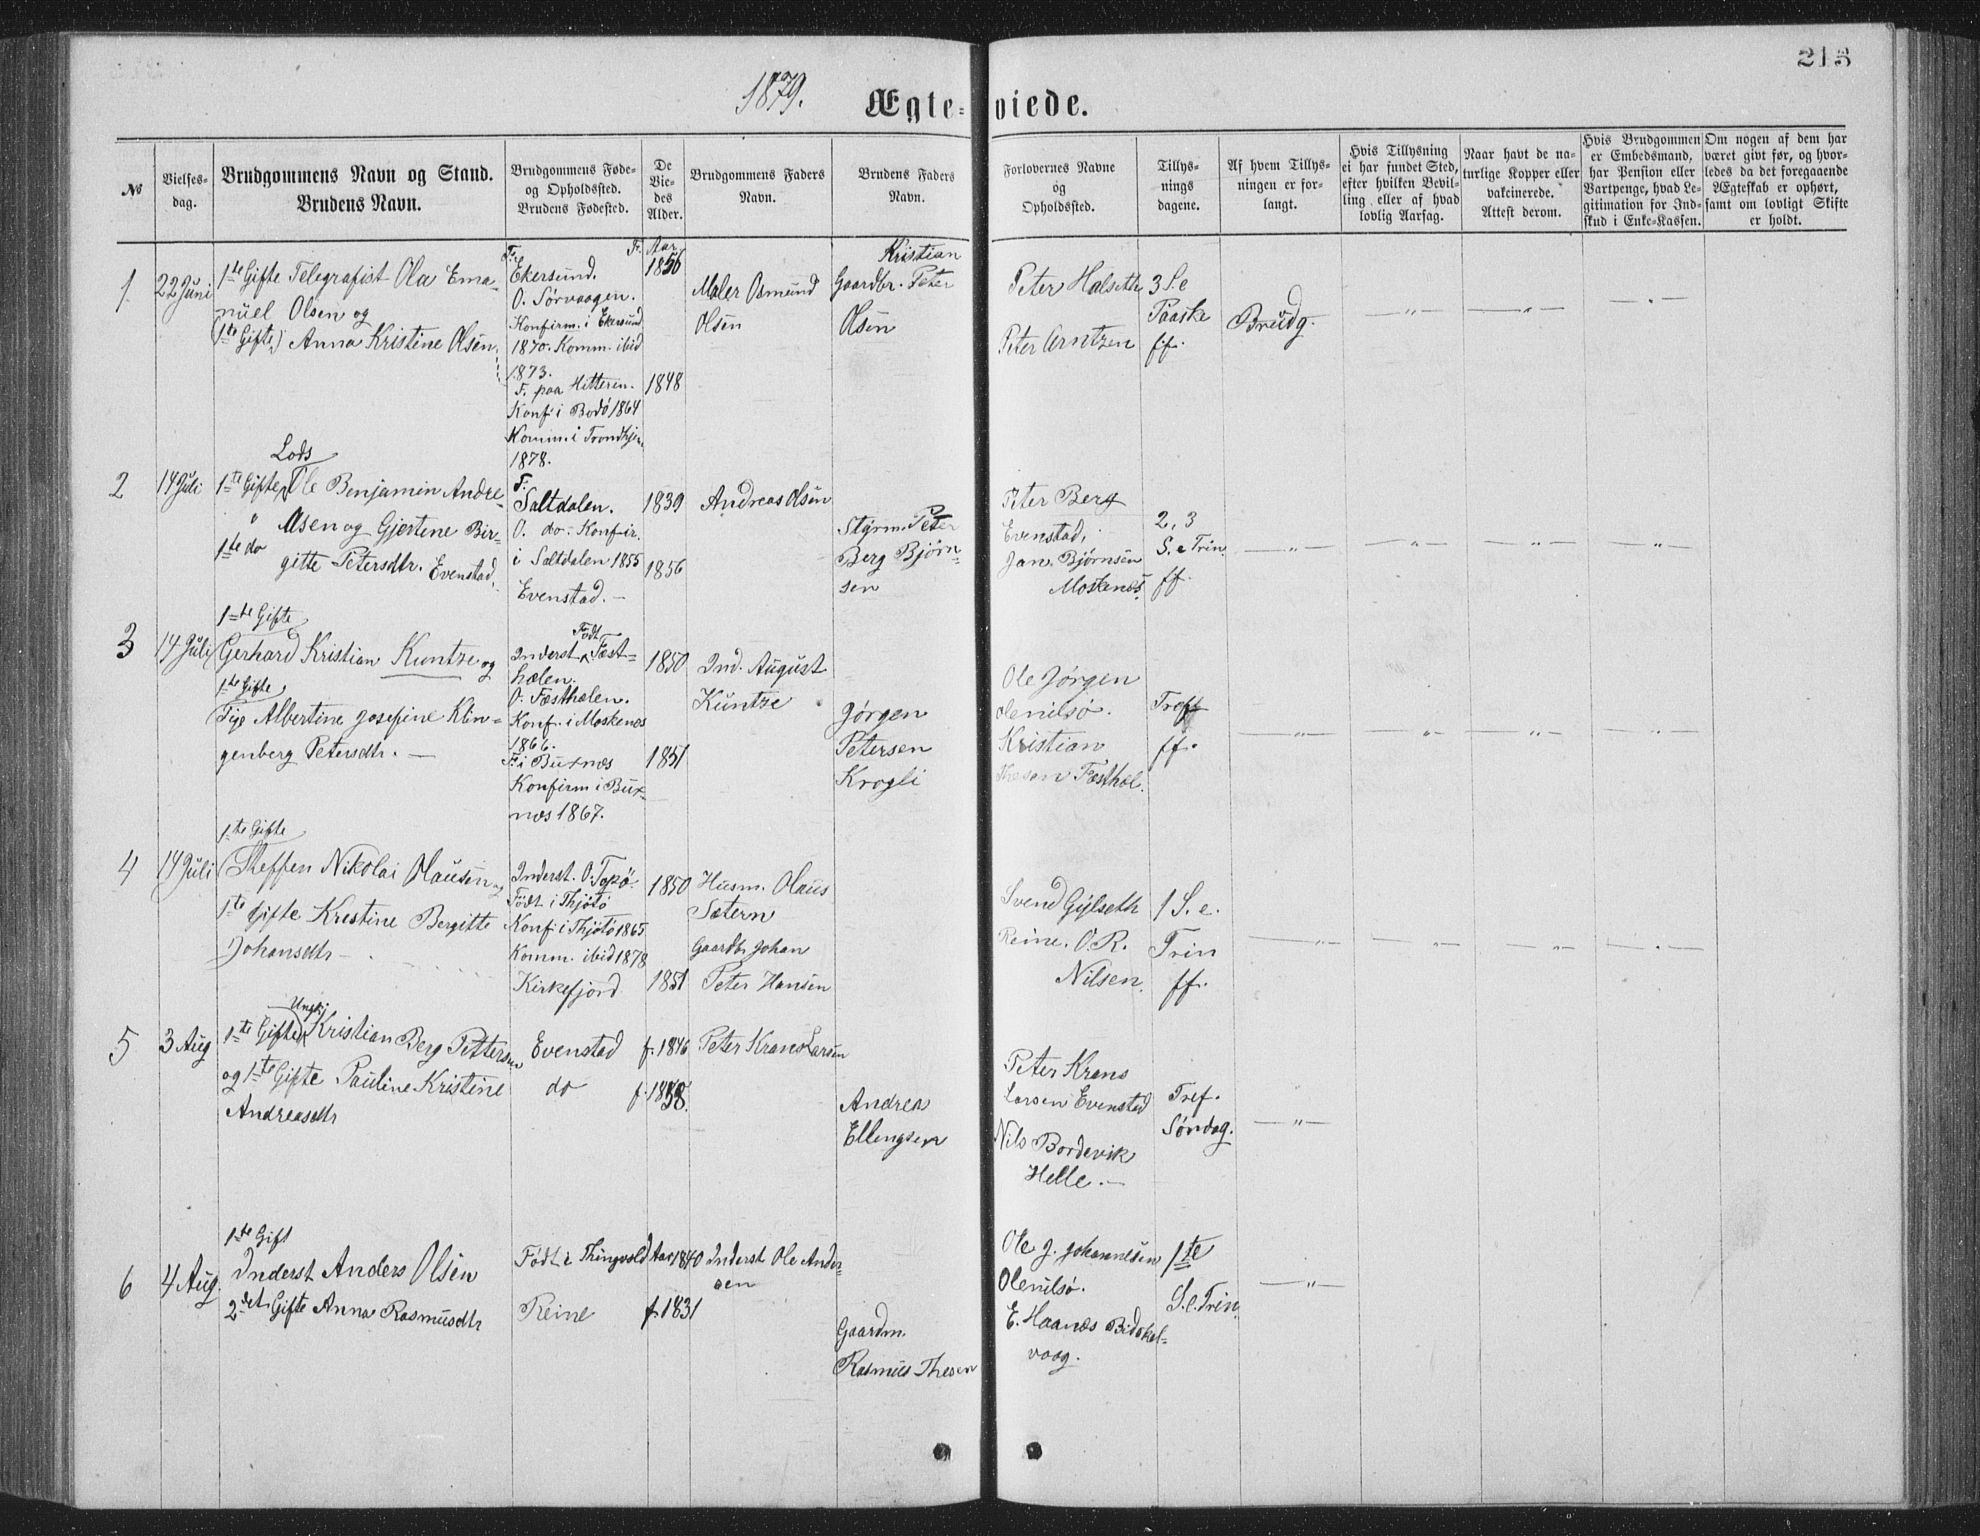 213
1879.
Ægte-viede.
No
Vielses-
dag.
Brudgommens Navn og Stand.
Brudens Navn.
Brudgommens Føde-
og Opholdssted.
Brudens Fødested.
De
Vie-
des
Alder.
Brudgommens Faders
Navn.
Brudens Faders
Navn.
Forlovernes Navne
og
Opholdssted.
Tillys-
nings
dagene.
Af hvem Tillys-
ningen er for-
langt.
Hvis Tillysning
ei har fundet Sted,
efter hvilken Bevil-
ling eller af hvad
lovlig Aarsag.
Naar havt de na-
turlige Kopper eller
vakcinerede.
Attest derom.
Hvis Brudgommen
er Embedsmand,
har Pension eller
Vartpenge, hvad Le-
gitimation for Ind-
skud i Enke-Kassen.
Om nogen af dem har
været gift før, og hvor-
ledes da det foregaaende
Ægteskab er ophørt,
samt om lovligt Skifte
er holdt.
1
22 Juni
1te Gifte Telegrafist Ola Ema-
nuel Olsen og
(1te Gifte) Anna Kristine Olsen
F. i
Ekersund.
O. Sørvaagen.
Konfirm. i Ekersund
1870. Komm. ibid
1873.
F. paa Hitteren.
Konf. i Bodö 1864
Komm. i Trondhjem
1878.
F. Aar
1856
1848
Maler Osmund
Olsen
Kristian
Gaardbr. Peter
Olsen
Peter Halseth
Peter Arntzen
3 S. e
Paaske
ff.
Brudg.
2
14 Juli
Lods
1te Gifte Ole Benjamin Andre-
" Olsen og Gjertine Bir-
1te do gitte Petersdtr. Evenstad.
F.
Saltdalen.
O. do: Konfir.
i Saltdalen 1855
Evenstad. —
1839
1856
Andreas Olsen
Styrm. Peter
Berg Bjørn-
sen
Peter Berg
Evenstad,
Jan. Bjørnsen
Moskenes.
2, 3
S. e Trin.
ff.
3
14 Juli
1te Gifte
Gerhard Kristian Kuntze og
1te Gifte
Pige Albertine Josefine Klin-
genberg Petersdtr. —
Født
Inderst Fæst-
hælen.
O. Fæsthælen.
Konf. i Moskenes
1866.
F. i Buxnæs
Konfirm i Bux-
næs 1867.
1850
1851
Ind. August
Kuntze
Jørgen
Petersen
Krogli
Ole Jørgen
Olenilsö.
Kristian
Thesen Fæsthæl.
Tref
ff.
4
14 Juli
1te Gifte
Steffen Nikolai Olausen og
1te Gifte Kristine Bergitte
Johansdtr —
Inderst. O. Topö.
Födt i Thjötö
Konf. i Thjötö 1865
Komm. ibid 1878
Kirkefjord
1850
1851
Husm. Olaus
Sætern
Gaardbr Johan
Peter Hansen
Svend Gylseth
Reine. O. R.
Nilsen.
1 S. e.
Trin
ff.
5
3 Aug
Ungk.
1te Gifte Kristian Berg Pettersen
og 1te Gifte Pauline Kristine
Andreasdtr
Evenstad
do
f. 1846
f. 1858.
Peter Krans Larsen
Andreas
Ellingsen
Peter Krans
Larsen Evenstad
Nils Bordevik
Helle. —
Tref.
Søndag.
6
4 Aug.
1te Gift
Inderst Anders Olsen
2det Gifte Anna Rasmusdtr
Födt i Thingvold
Reine
Aar 1840
f. 1831
Inderst Ole Ander-
sen
Gaardm.
Rasmus Thesen
Ole J. Johannesen
Olenilsö.
E. Haanæs Bidskel-
vaag.
1te
S. e. Trin.